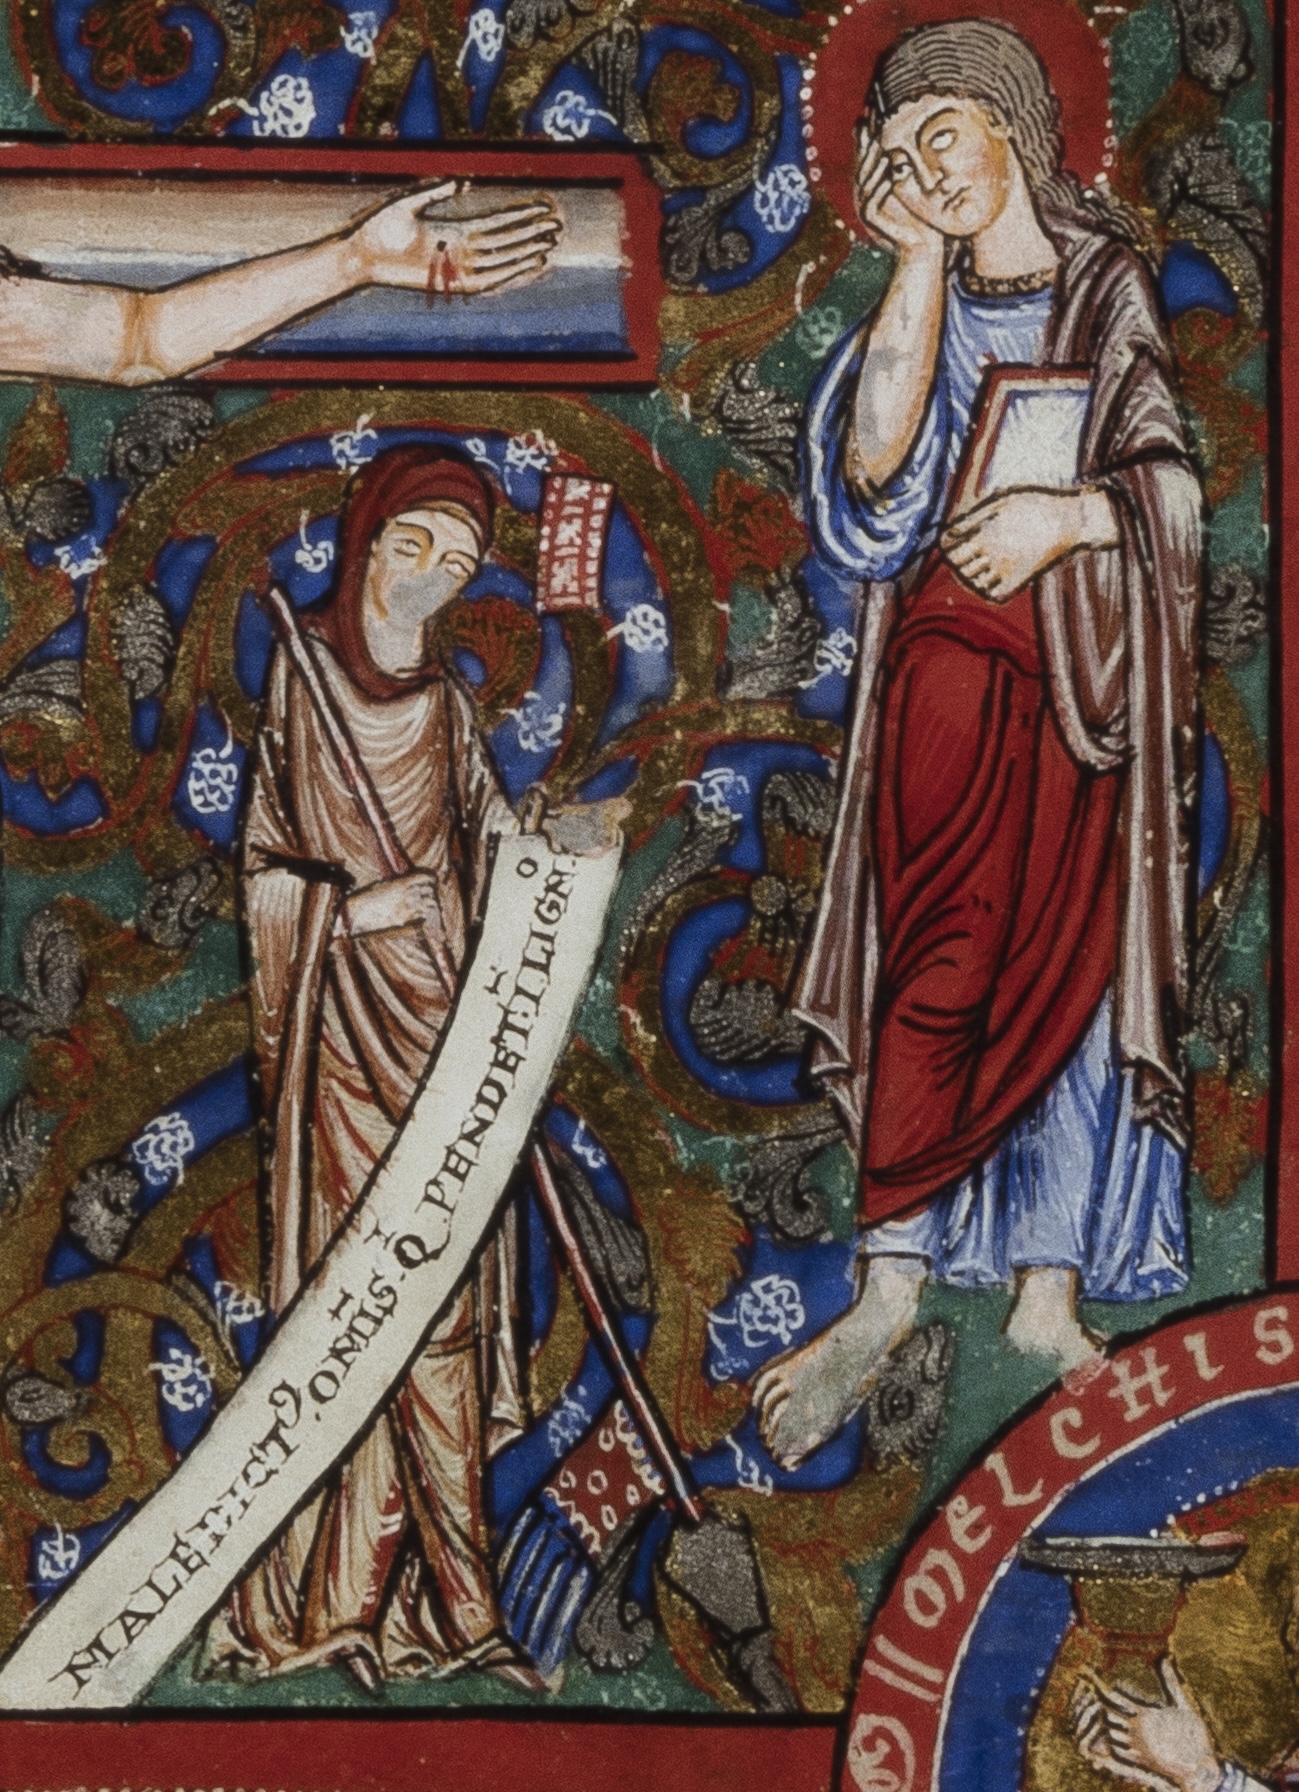 MALEDICTꝰ. OM̄IS. Qͥ PENDET·Ī LIGNͦ.
MELCHIS